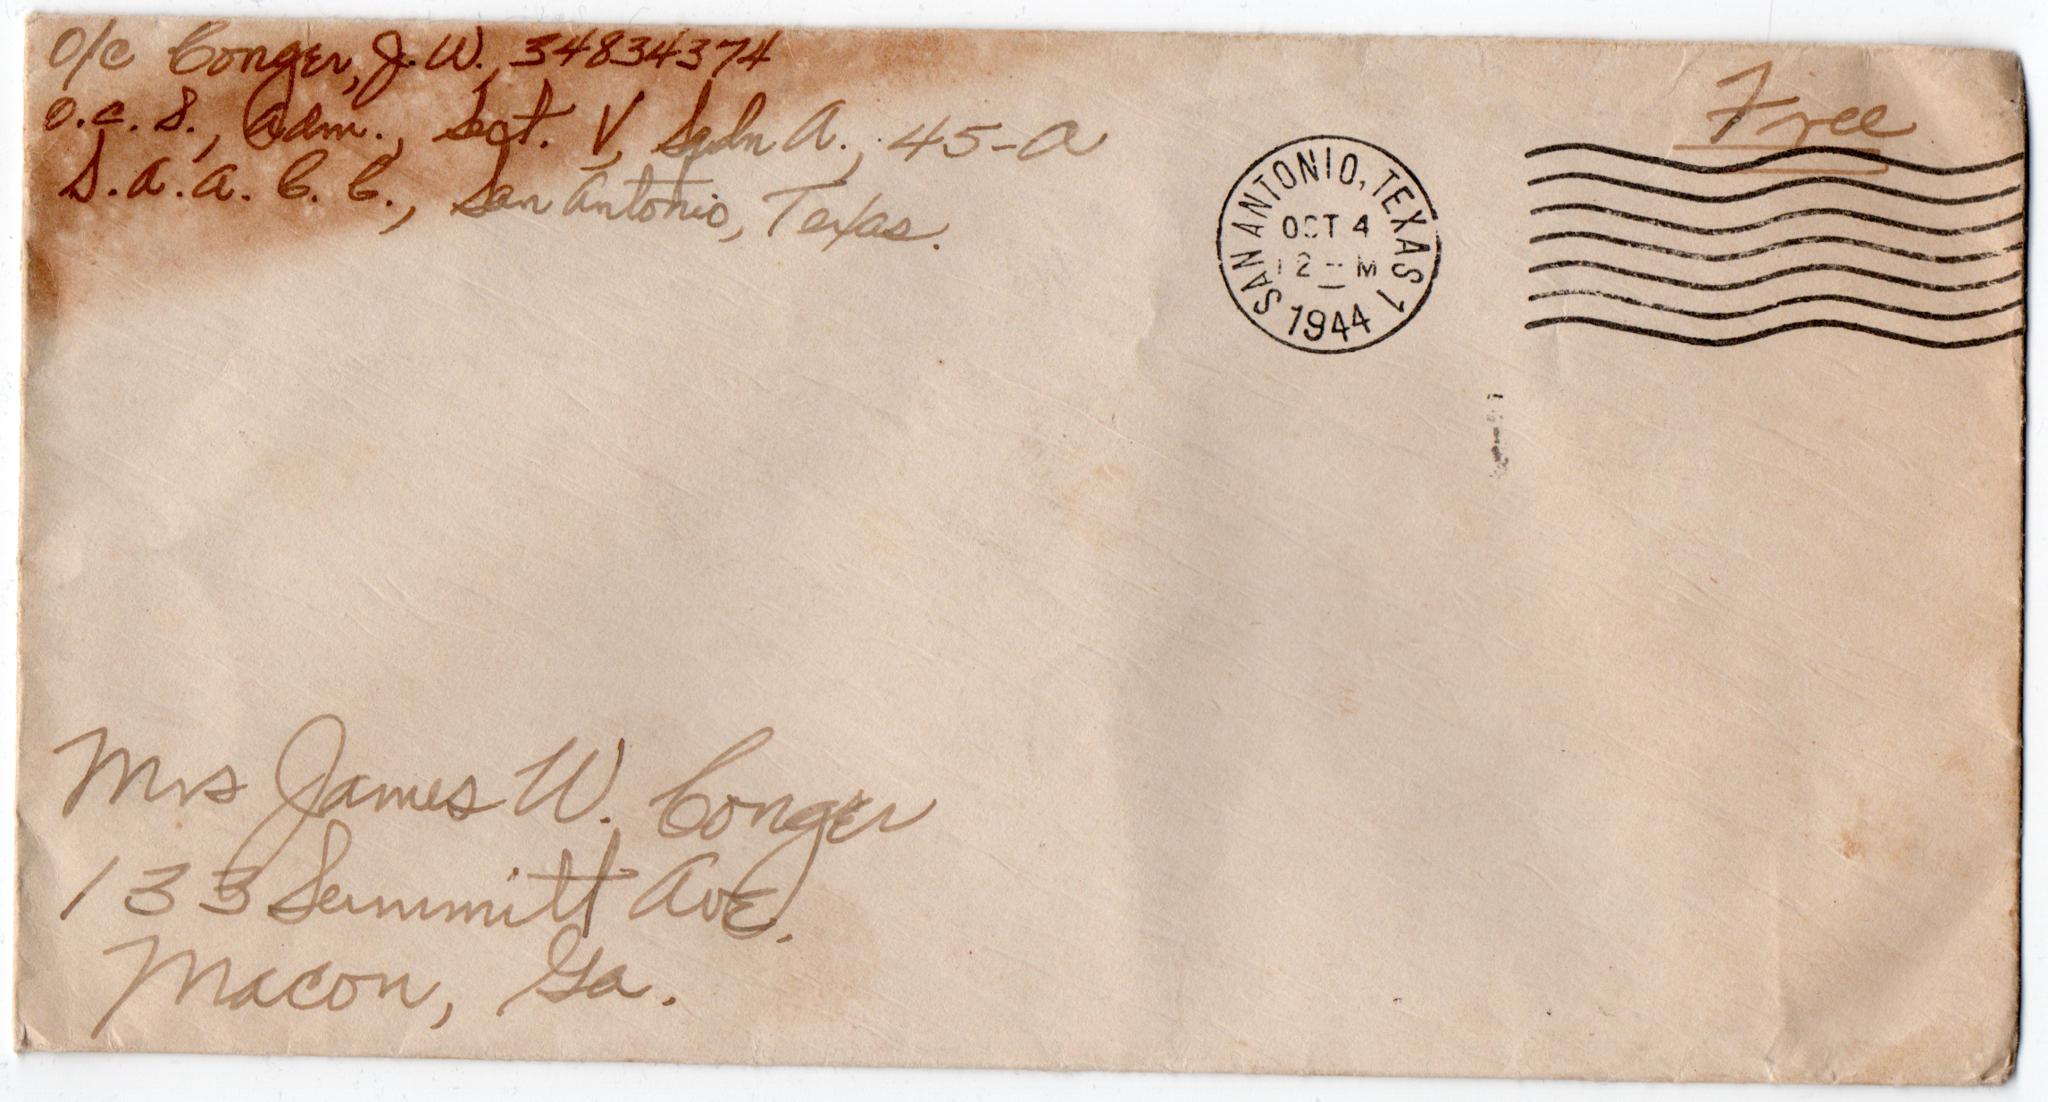 O/C Conger, J. W. 34834374
O.C.S., Adm., Sect. V, Sqdn A., 45-A
S.A.A.C.C., San Antonio, Texas.
Free
SAN ANTONIO, TEXAS 1
OCT 4
12 - M
1944
Mrs James W. Conger
133 Summitt Ave.
Macon, Ga.